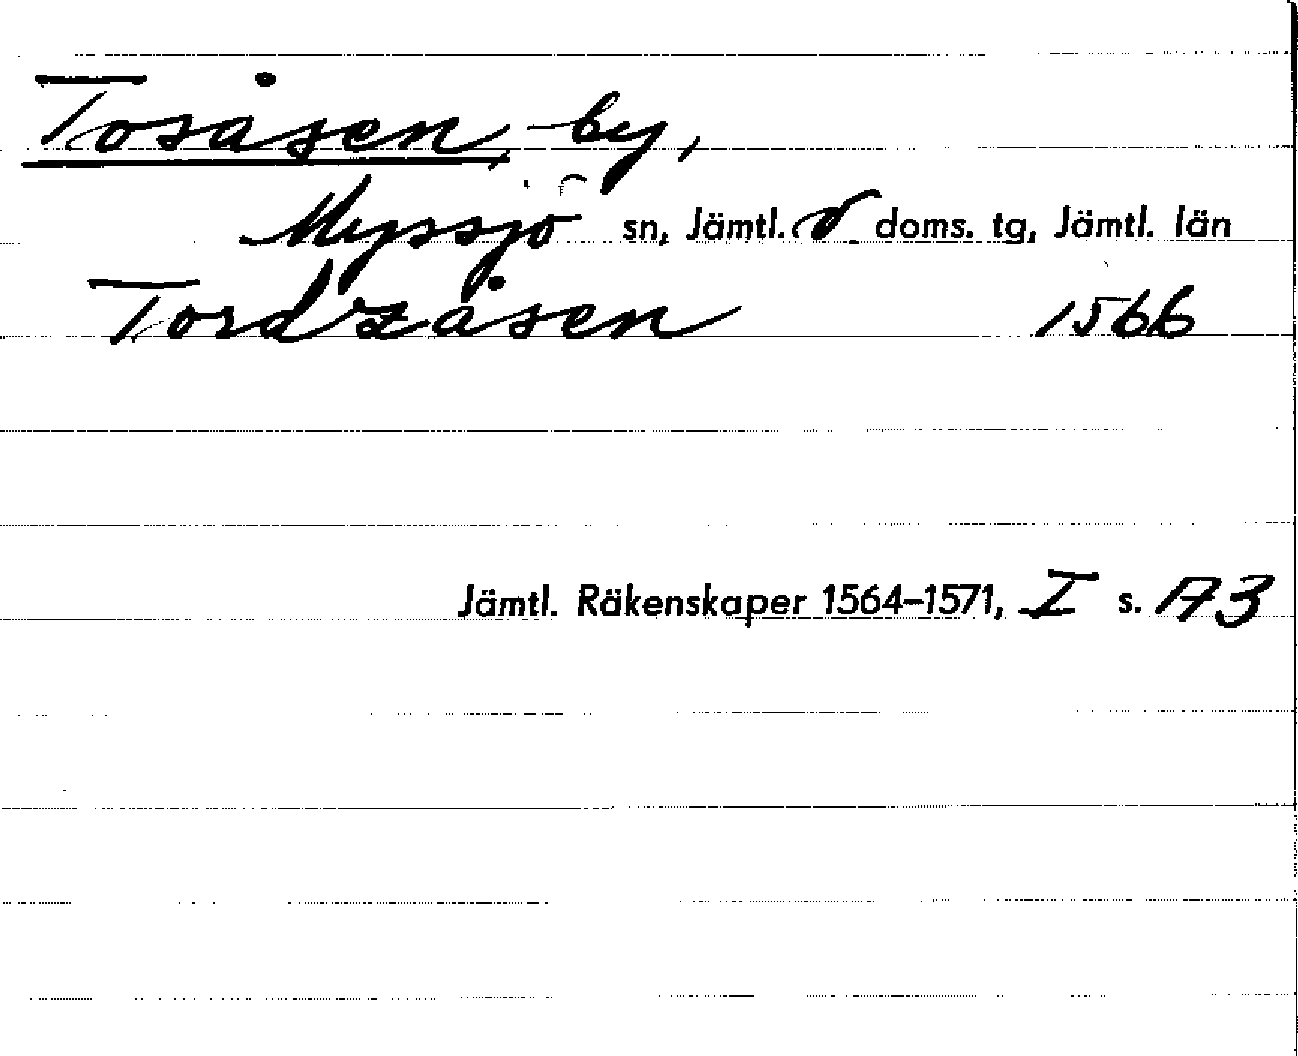 Tosåsen, by,
Myssjö sn, Jämtl. v doms. tg, Jämtl. län
Tordzåsen 1566
Jämtl. Räkenskaper 1564–1571, I s. A3